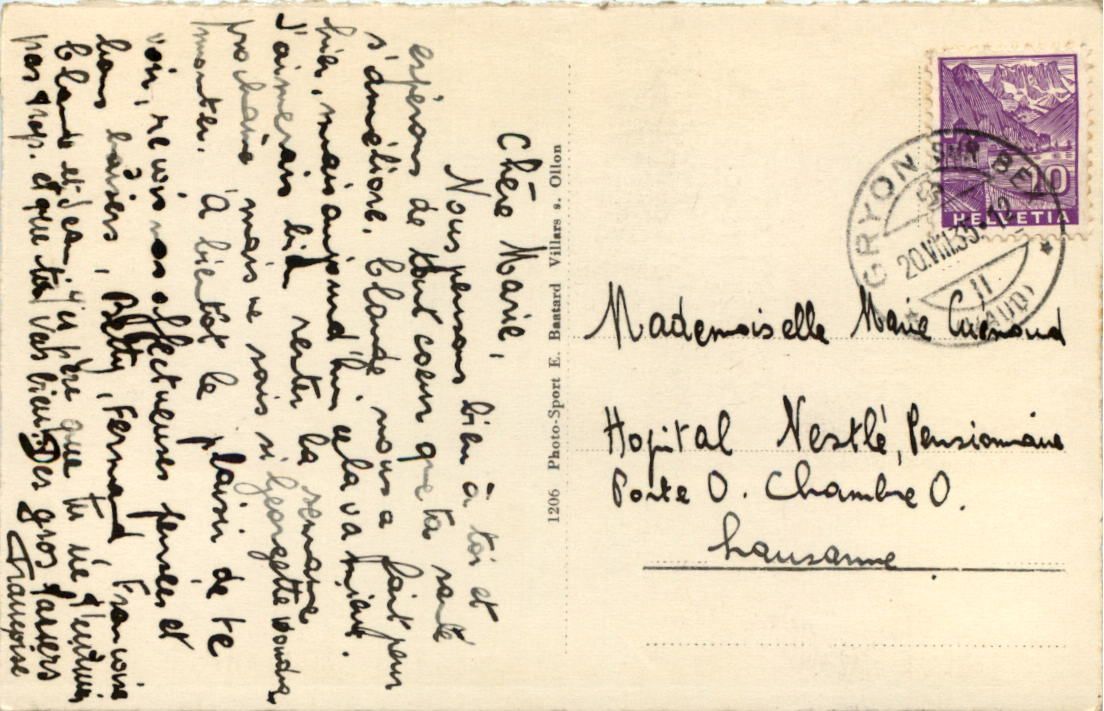 Chère Marie,
Nous pensons bien à toi et
espérons de tout coeur que ta santé
s'améliore. Claude nous a fait peur
hier, mais aujourd'hui cela va mieux.
J'aimerais bien rentrer la semaine
prochaine mais ne sais si Georgette voudra
monter. A bientôt le plaisir de te
voir, reçois nos affectueuses pensées et
bons baisers, Betty, Fernand, Francoise
Claude et Jean j'espère que tu ne t'ennuie
pas trop. et que tu vas bien. Des gros baisers
Francoise
1206 Photo-Sport E. Bastard Villars s. Ollon
10
HELVETIA
GRYON SUR BEX
20.VIII.35.
(VAUD)
Mademoiselle Marie Cuénoud
Hopital Nestlé, Pensionnaire
Porte O. Chambre O.
Lausanne